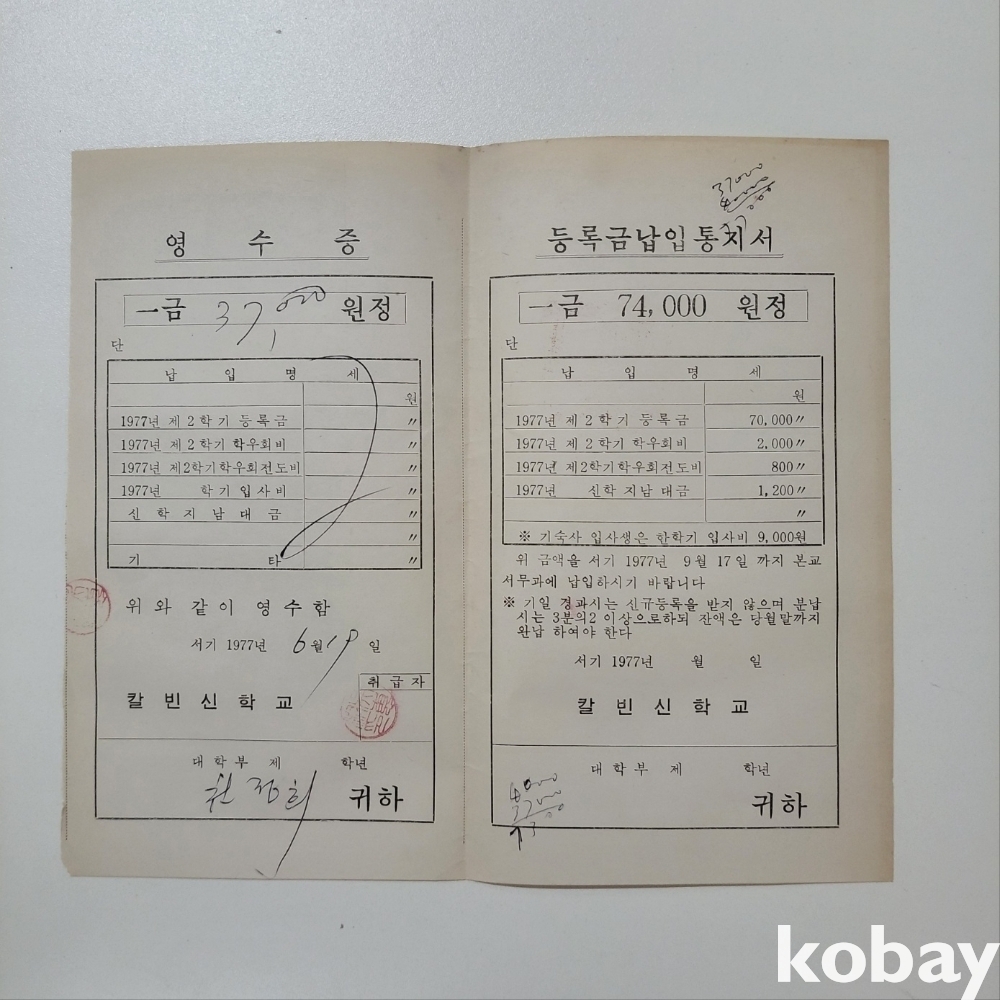 영수증
一금 37,000 원정
단
납입명 세
원
1977년 제2학기 등록금 〃
1977년 제2학기 학우회비 〃
1977년 제2학기학우회전도비 〃
1977년 학기입사비 〃
신학지남대금 〃
〃
기타 〃
위와 같이 영수함
서기 1977년 6월 19일
취급자
칼빈신학교
대학부 제 학년
정희 귀하
37000
등록금납입통지서
一금 74,000 원정
단
납입명 세
원
1977년 제2학기 등록금 70,000〃
1977년 제2학기 학우회비 2,000〃
1977년 제2학기학우회전도비 800〃
1977년 신학지남대금 1,200〃
〃
※ 기숙사 입사생은 한학기 입사비 9,000원
위 금액을 서기 1977년 9월 17일 까지 본교
서무과에 납입하시기 바랍니다
※ 기일 경과시는 신규등록을 받지 않으며 분납
시는 3분의2 이상으로하되 잔액은 당월말까지
완납 하여야 한다
서기 1977년 월 일
칼빈신학교
대학부 제 학년
귀하
kobay